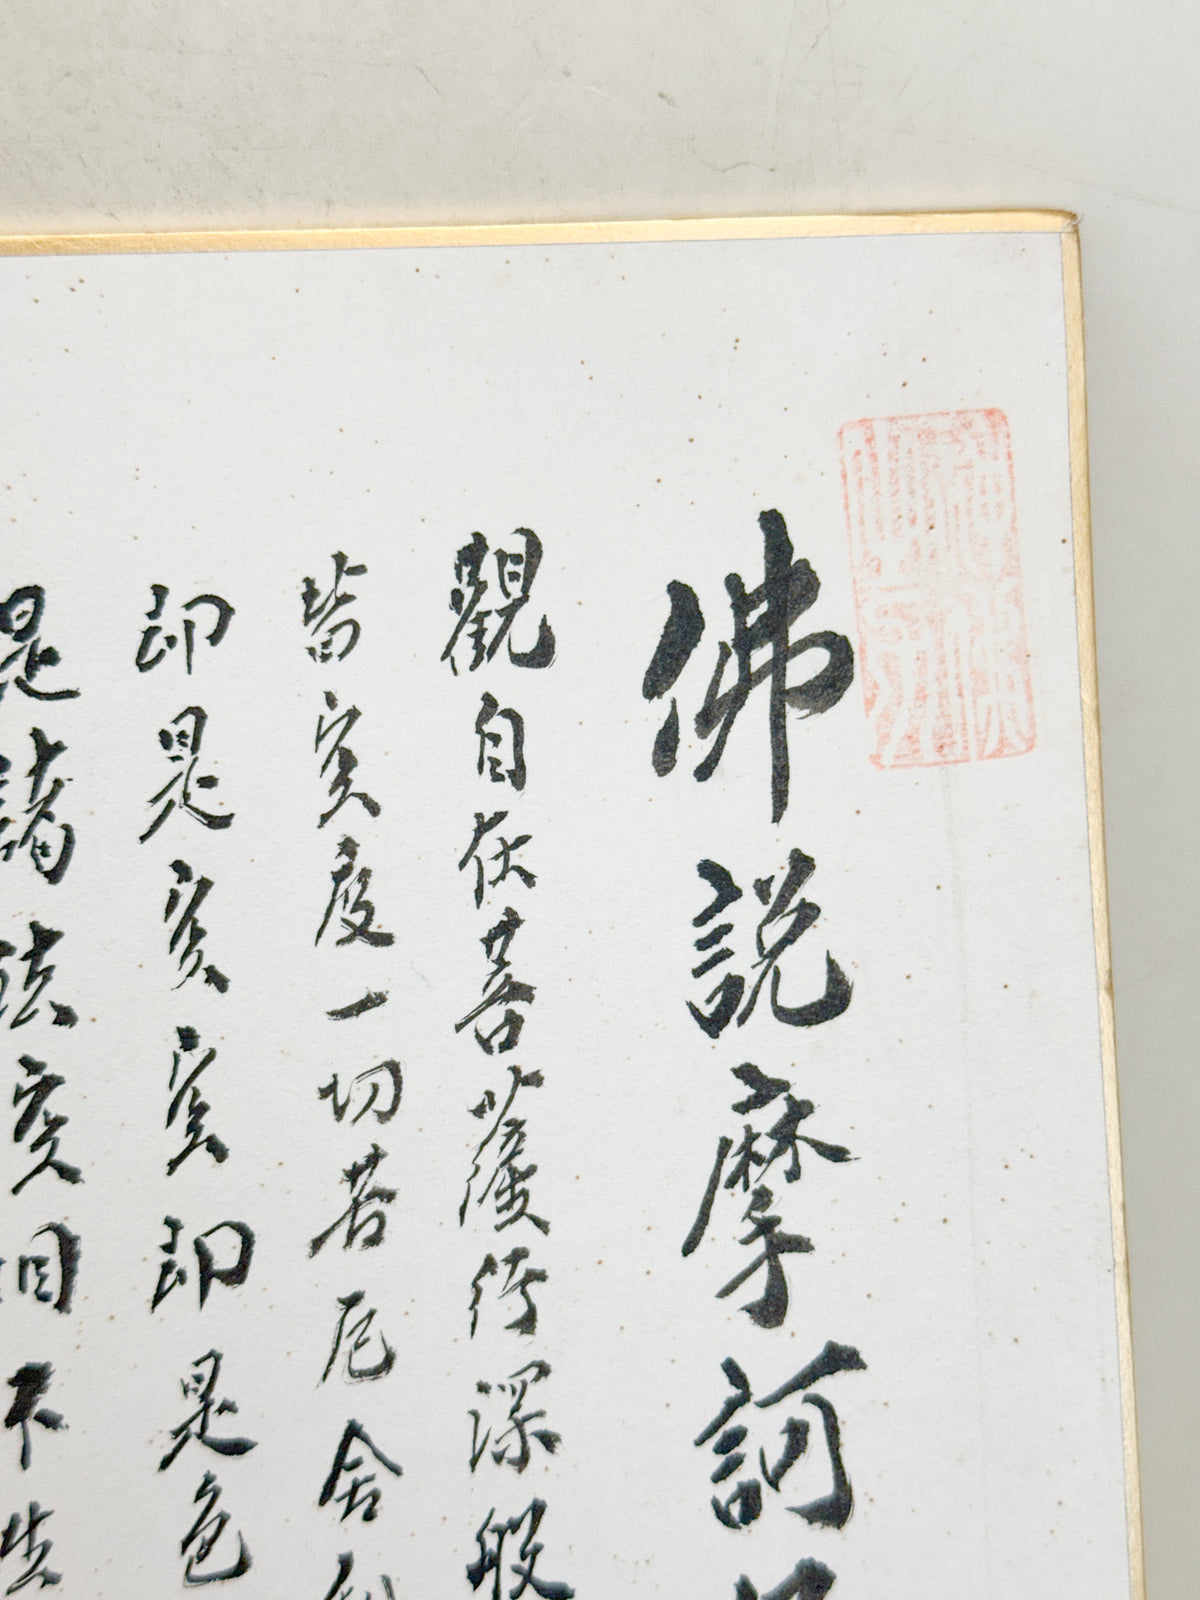 佛說摩訶
觀自在菩薩行深般
皆空度一切苦厄舍
即是空空即是色
是諸法空相不生